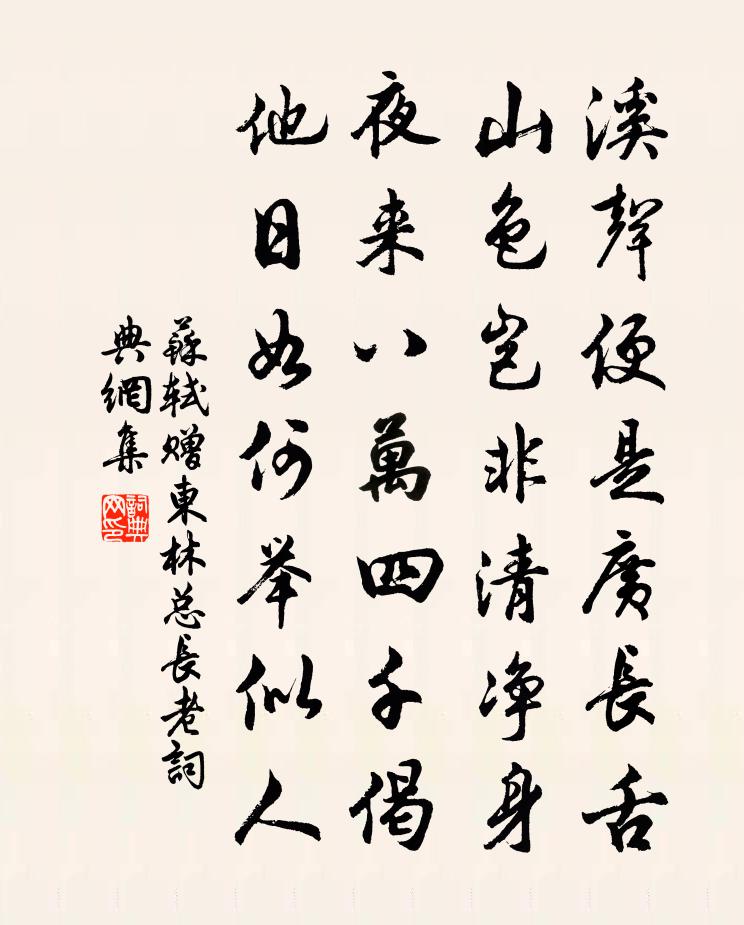 溪聲便是廣長舌
山色豈非清净身
夜来八萬四千偈
他日如何举似人
蘇軾贈東林总長老詞
典網集
詞典
网印